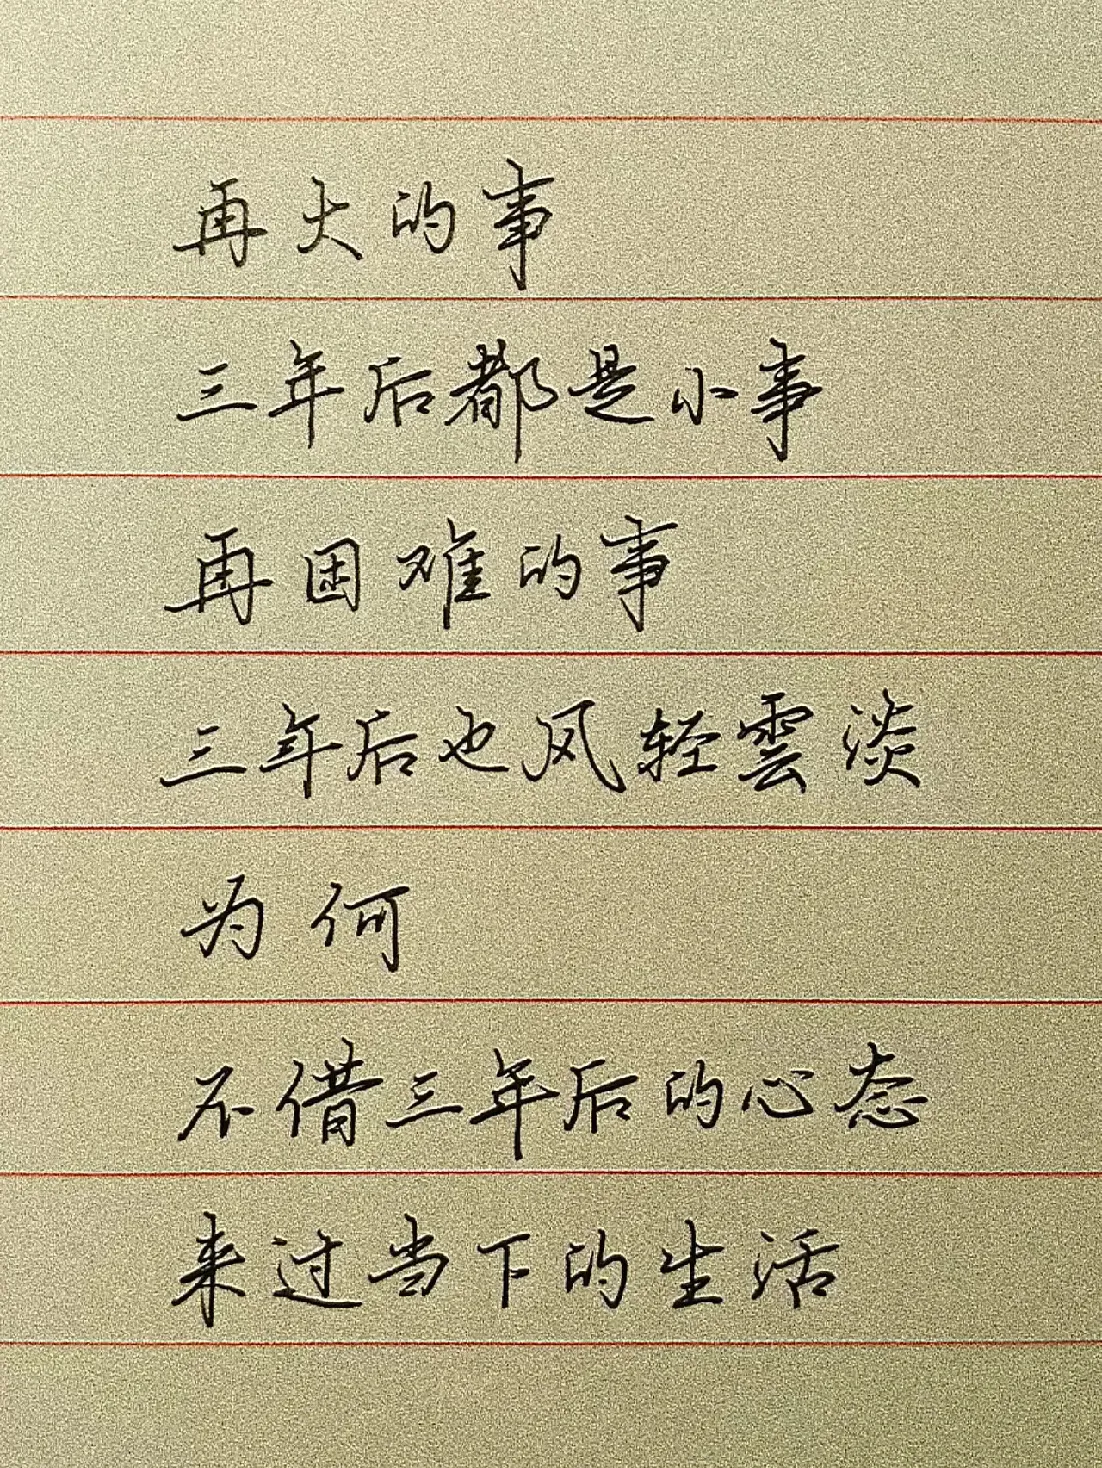 再大的事
三年后都是小事
再困难的事
三年后也风轻雲淡
为何
不借三年后的心态
来过当下的生活